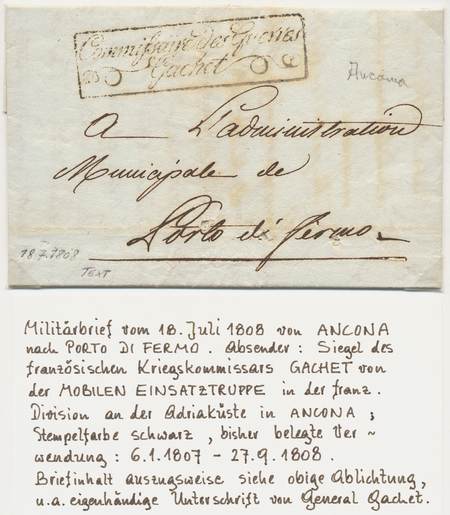 Commissaire Des Guerres
Gachet
Ancona
A L'administration
Municipale de
Porto di fermo
18.7.1808
TEXT
Militärbrief vom 18. Juli 1808 von ANCONA
nach PORTO DI FERMO. Absender: Siegel des
französischen Kriegskommissars GACHET von
der MOBILEN EINSATZTRUPPE in der franz.
Division an der Adriaküste in ANCONA ;
Stempelfarbe schwarz , bisher belegte Ver ~
wendung : 6.1.1807 - 27.9.1808.
Briefinhalt auszugsweise siehe obige Ablichtung,
u.a. eigenhändige Unterschrift von General Gachet.